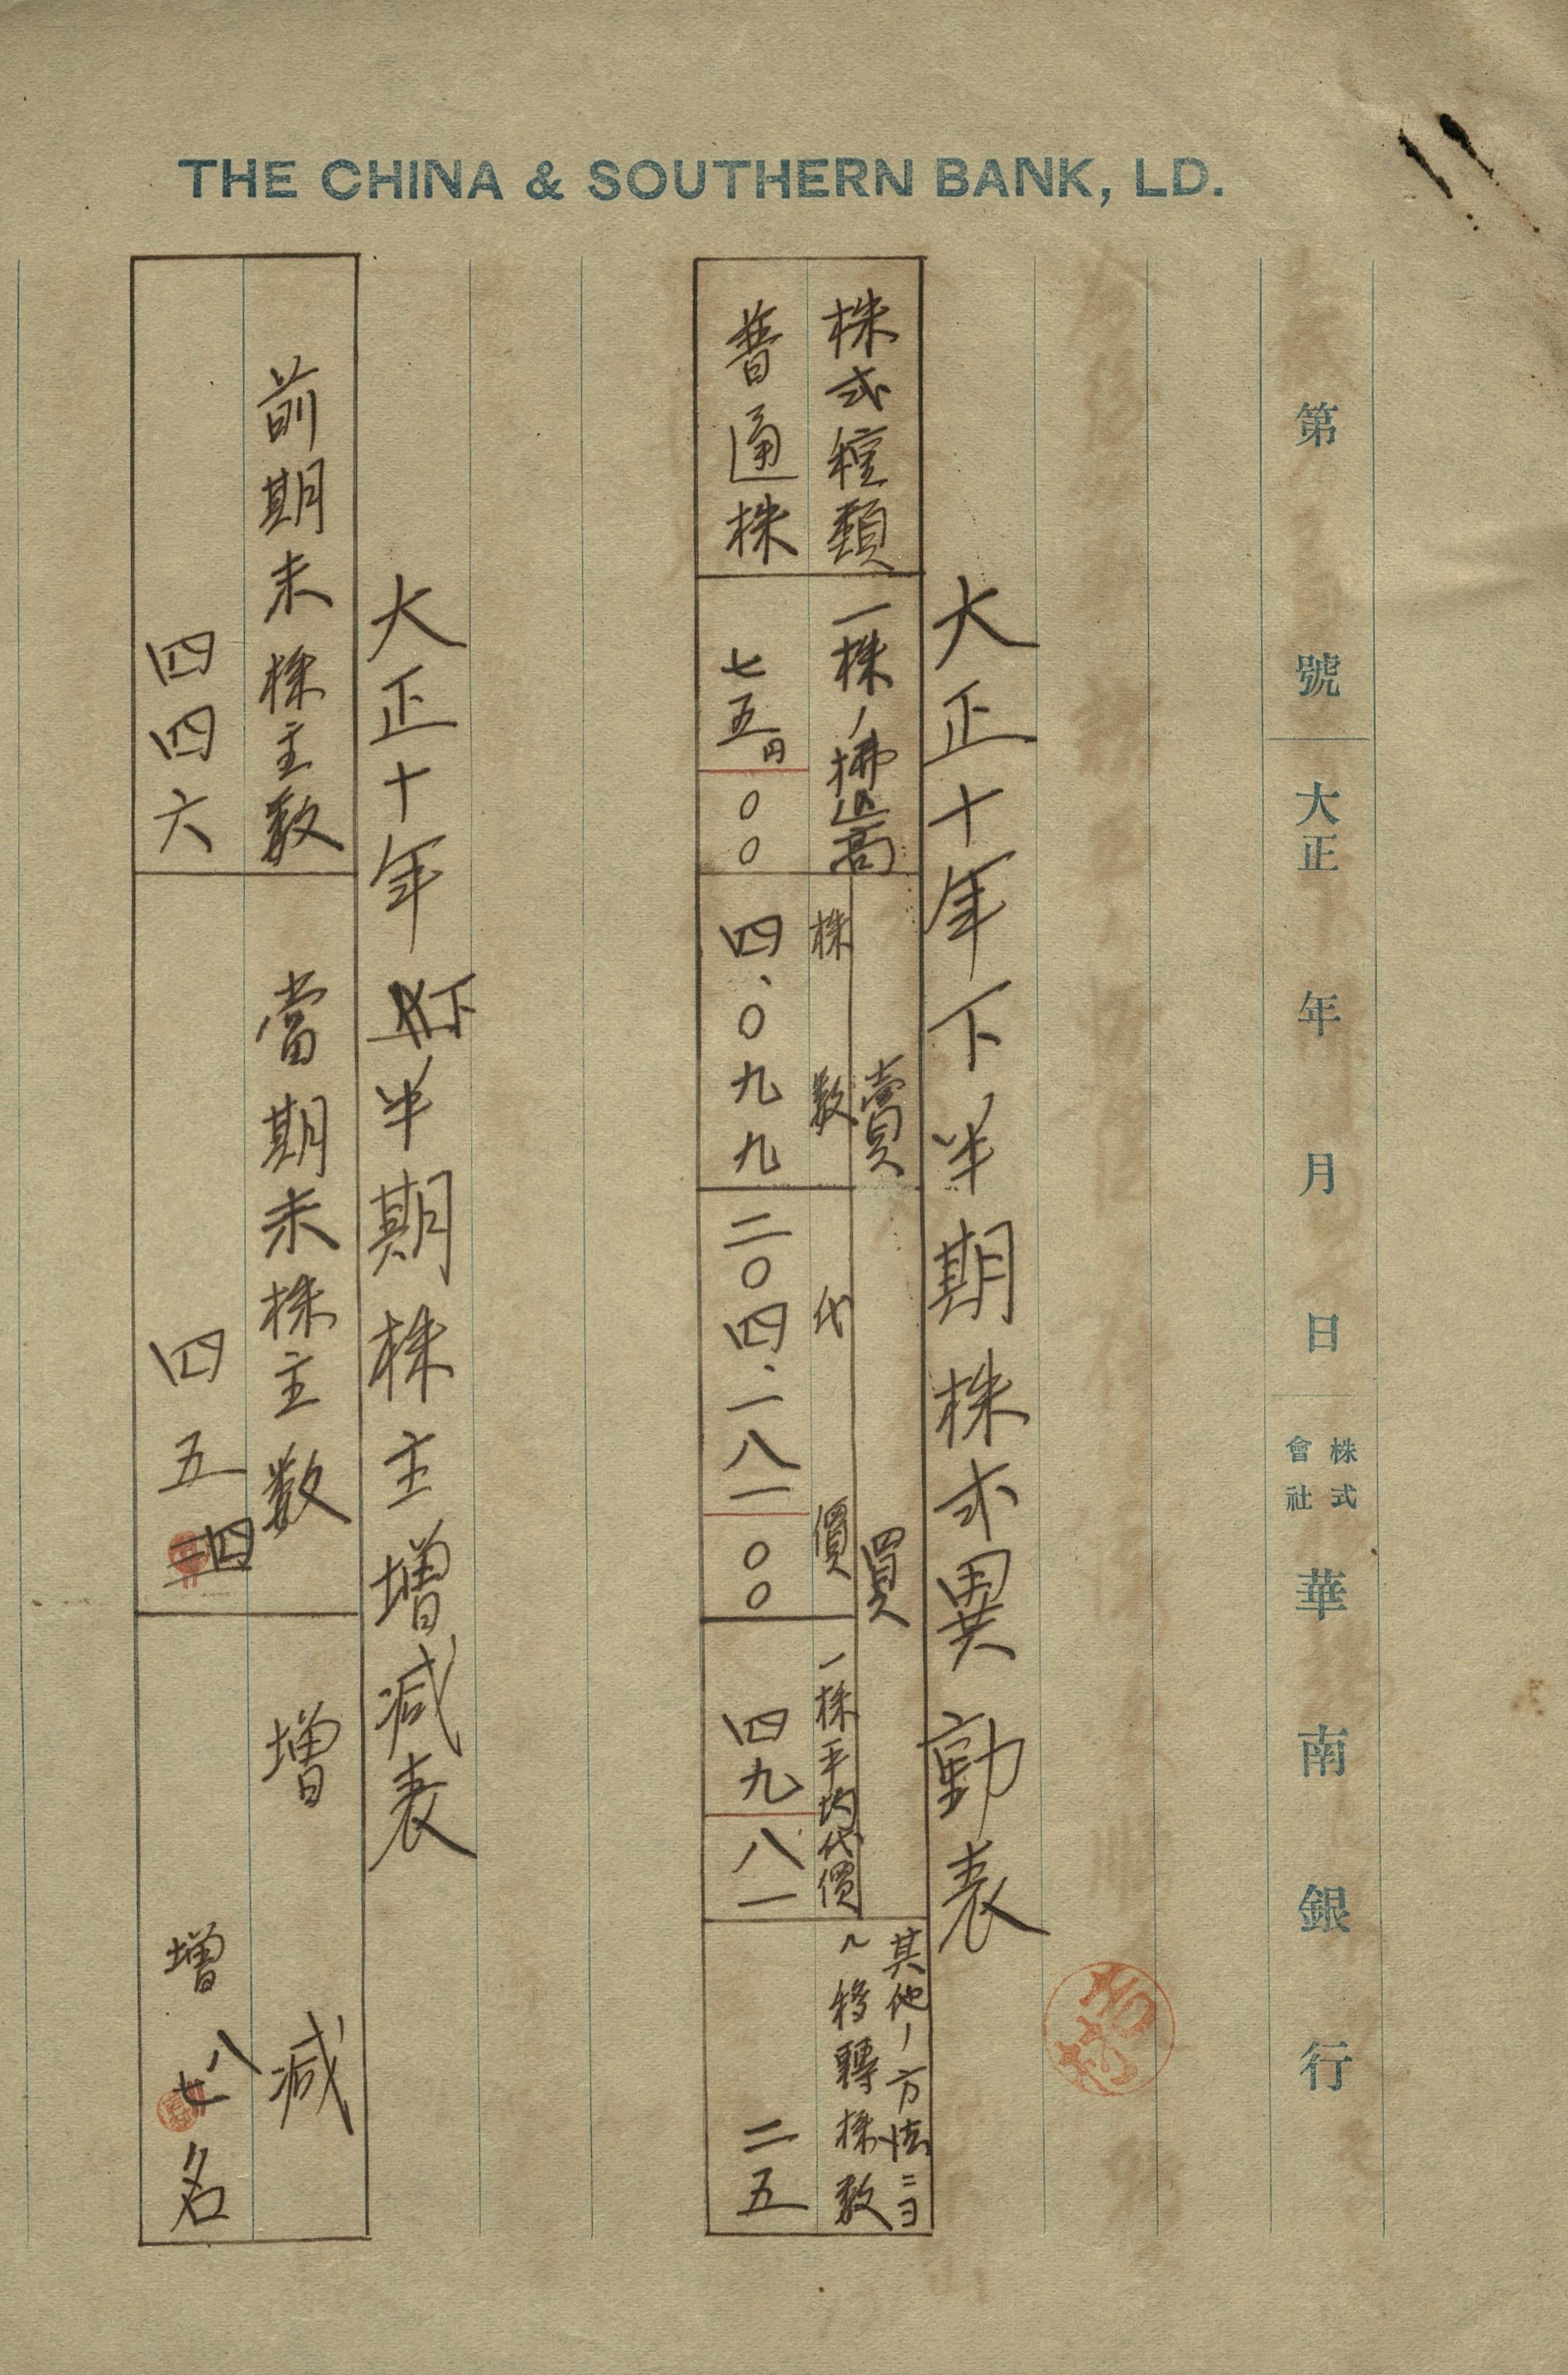 THE CHINA & SOUTHERN BANK, LD.
第 號 大正 年 月 日 株式會社 華南銀行
大正十年下半期株式異動表
株式種類
普通株
一株ノ拂込高
七五円〇〇
賣買
株數
四、〇九九
代價
二〇四、一八一〇〇
一株平均代價
四九八一
其他ノ方法ニヨ
ル移轉株数
二五
大正十年下半期株主増減表
前期末株主数
四四六
當期末株主数
四五四
増減
増八名